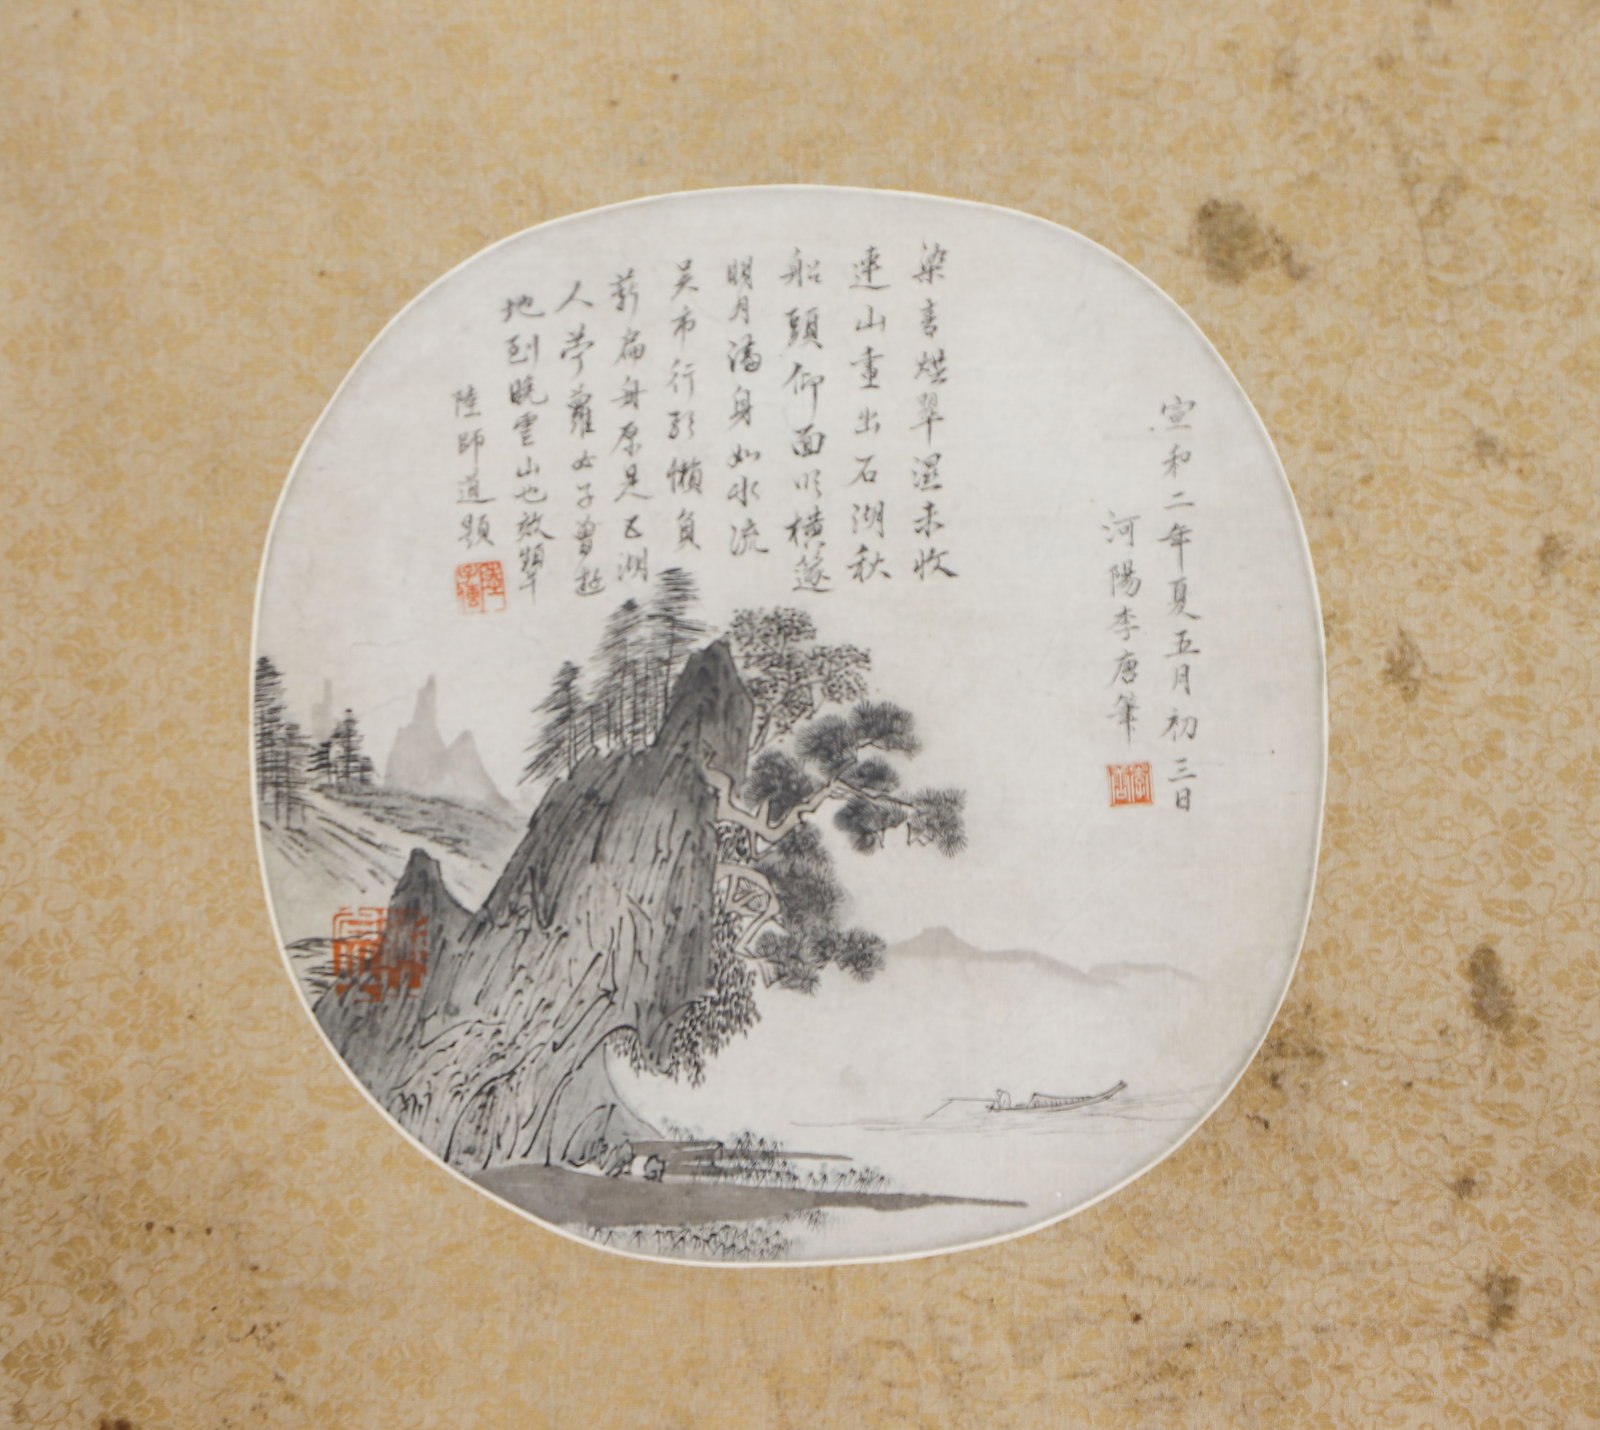 宣和二年夏五月初三日
河陽李唐筆
李唐
染青烘翠濕未收
連山重出石湖秋
船頭仰面吹橫篴
明月滿身如水流
吳市行歌懶負
薪扁舟原是五湖
人苧蘿女子曾遊
地到曉雲山也效顰
陸師道題